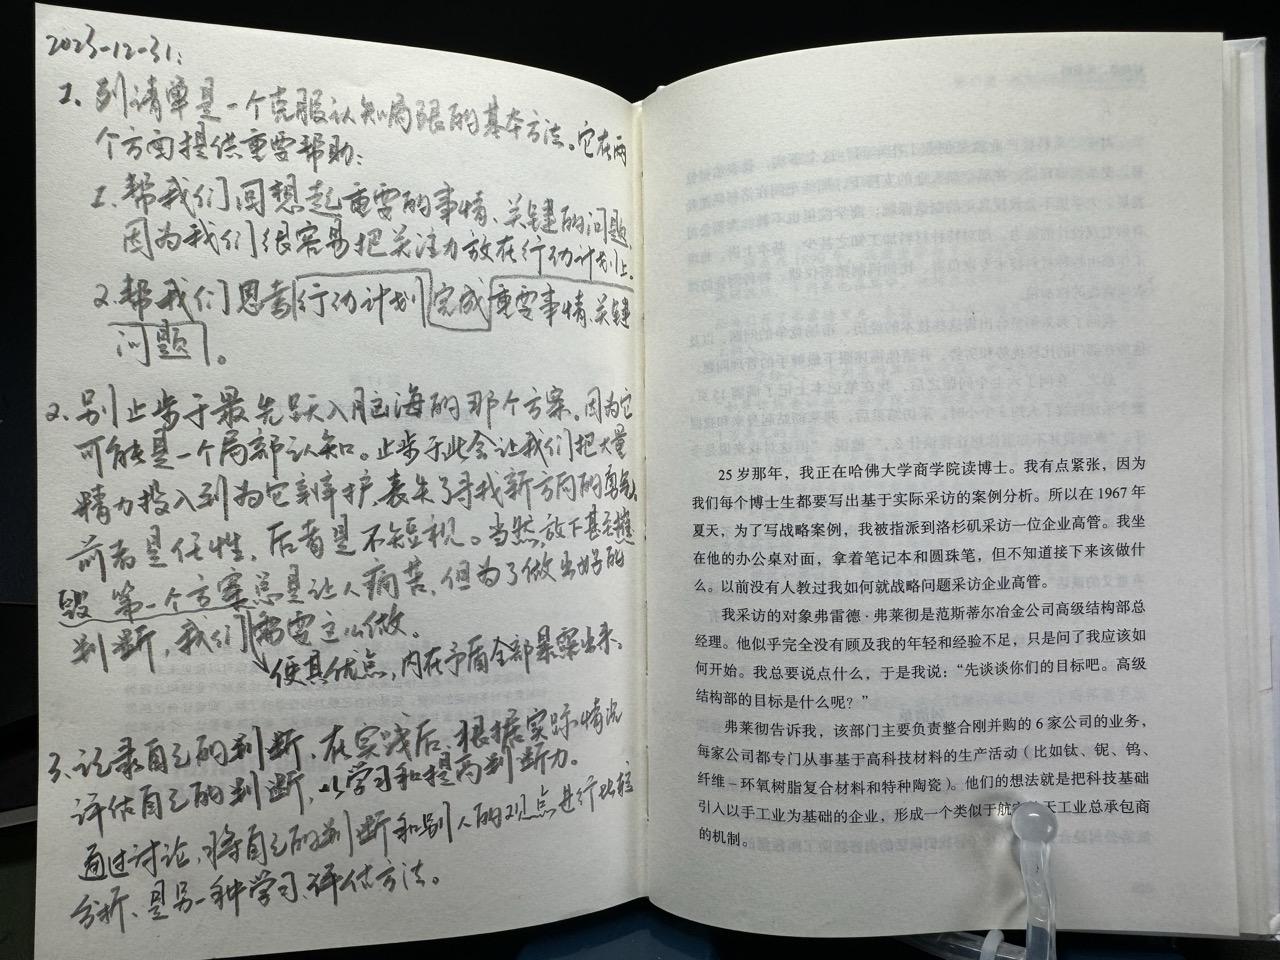 2023-12-31:
1、列清单是一个克服认知局限的基本方法。它在两
个方面提供重要帮助：
1. 帮我们回想起重要的事情、关键的问题,
因为我们很容易把关注力放在行动计划上。
2. 帮我们思考行动计划完成重要事情、关键
问题。
2、别止步于最先跃入脑海的那个方案。因为它
可能是一个局部认知。止步于此会让我们把大量
精力投入到为它辩护,丧失了寻找新方向的勇气。
前者是任性，后者是不短视。当然,放下甚至摧
毁 第一个方案总是让人痛苦，但为了做出好的
判断，我们需要这么做。
使其优点，内在矛盾全部暴露出来。
3、记录自己的判断，在实践后，根据实际情况
评估自己的判断，以学习和提高判断力。
通过讨论，将自己的判断和别人的观点进行比较
分析、是另一种学习、评估方法。
25 岁那年，我正在哈佛大学商学院读博士。我有点紧张，因为
我们每个博士生都要写出基于实际采访的案例分析。所以在 1967 年
夏天，为了写战略案例，我被指派到洛杉矶采访一位企业高管。我坐
在他的办公桌对面，拿着笔记本和圆珠笔，但不知道接下来该做什
么。以前没有人教过我如何就战略问题采访企业高管。
我采访的对象弗雷德·弗莱彻是范斯蒂尔冶金公司高级结构部总
经理。他似乎完全没有顾及我的年轻和经验不足，只是问了我应该如
何开始。我总要说点什么，于是我说：“先谈谈你们的目标吧。高级
结构部的目标是什么呢？”
弗莱彻告诉我，该部门主要负责整合刚并购的 6 家公司的业务，
每家公司都专门从事基于高科技材料的生产活动（比如钛、铌、钨、
纤维－环氧树脂复合材料和特种陶瓷）。他们的想法就是把科技基础
引入以手工业为基础的企业，形成一个类似于航天工业总承包商
的机制。